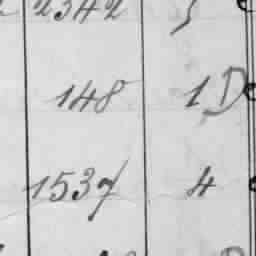 2342 5
148 1 D
1537 4